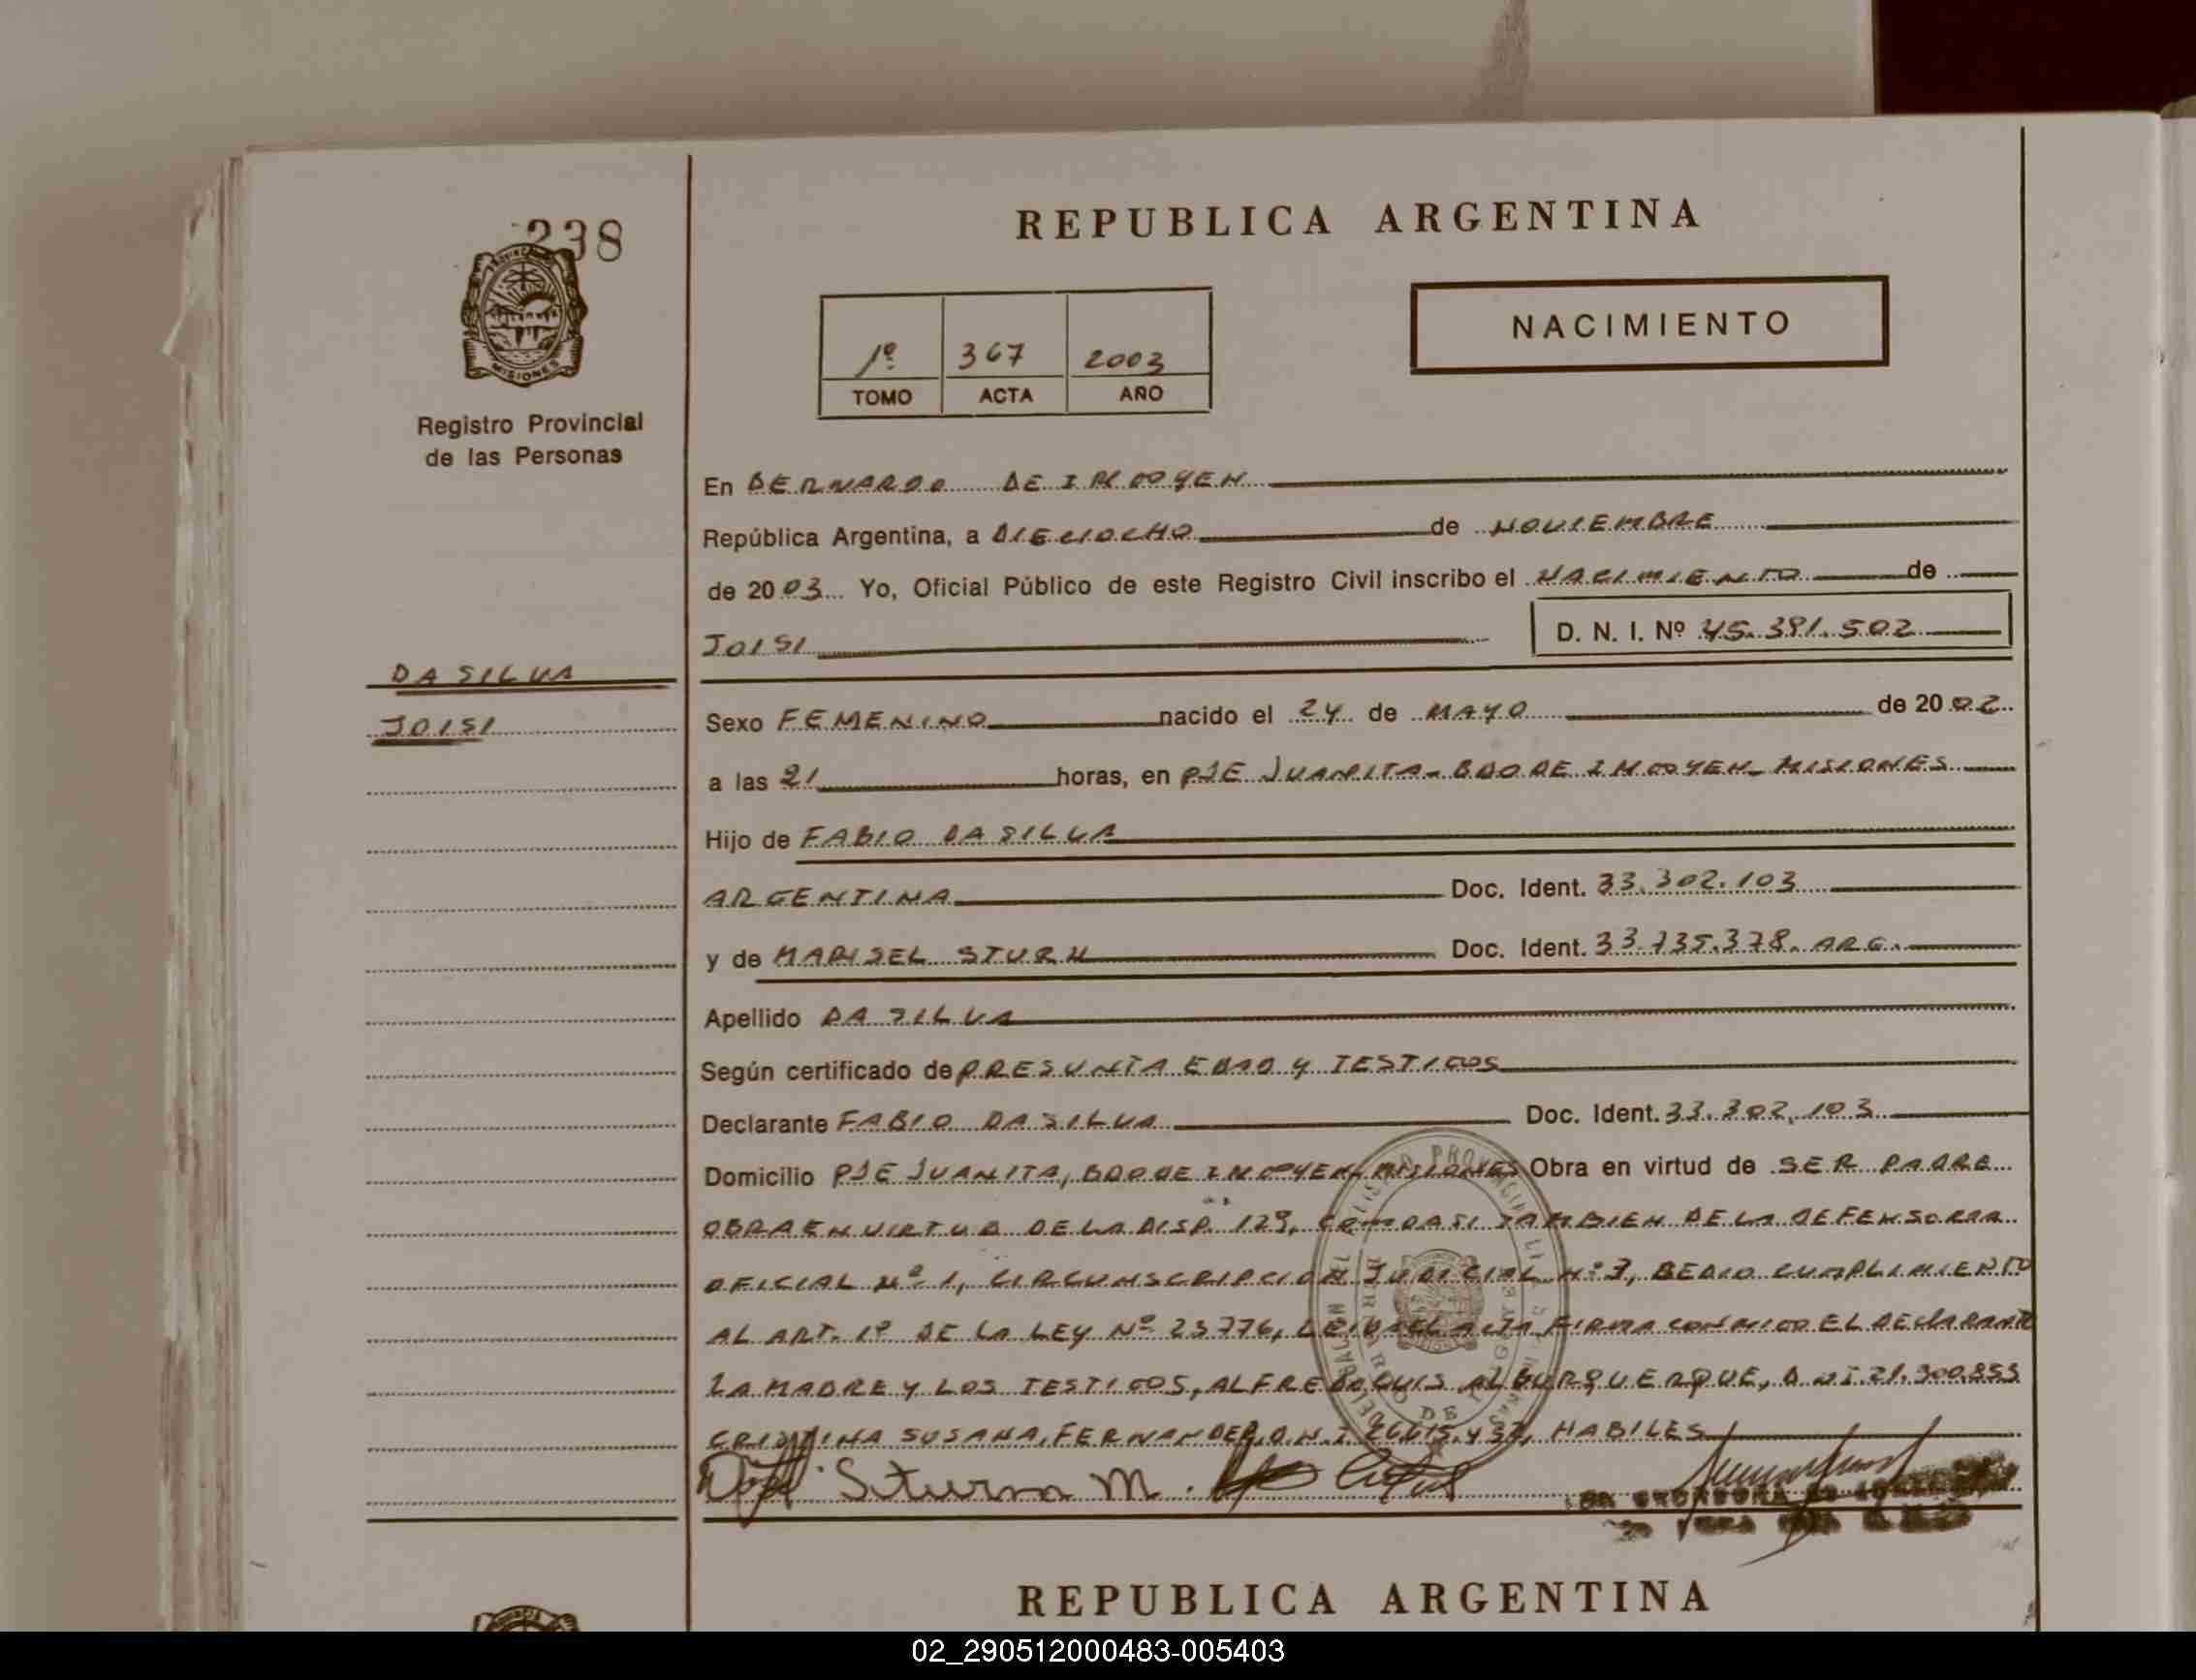 238
MISIONES
Registro Provincial
de las Personas
REPUBLICA ARGENTINA
NACIMIENTO
1º 367 2003
TOMO ACTA AÑO
En BERNARDO DE IRIGOYEN
República Argentina, a DIECIOCHO de NOVIEMBRE
de 2003 Yo, Oficial Público de este Registro Civil inscribo el NACIMIENTO de
JOISI D. N. I. Nº 45.391.502
DA SILVA
JOISI
Sexo FEMENINO nacido el 24 de MAYO de 2002
a las 21 horas, en PJE JUANITA - BDO DE IRIGOYEN - MISIONES
Hijo de FABIO DA SILVA
ARGENTINA Doc. Ident. 33.302.103
y de MARISEL STURM Doc. Ident. 33.735.378. ARG.
Apellido DA SILVA
Según certificado de PRESUNTA EDAD Y TESTIGOS
Declarante FABIO DA SILVA Doc. Ident. 33.302.103
Domicilio PJE JUANITA, BDO DE IRIGOYEN, MISIONES Obra en virtud de SER PADRE
OBRA EN VIRTUD DE LA DISP. 129, COMO ASI TAMBIEN DE LA DEFENSORIA
OFICIAL Nº 1, CIRCUNSCRIPCION JUDICIAL Nº 3, DEDIO CUMPLIMIENTO
AL ART. 1º DE LA LEY Nº 23776, LEIDA EL ACTA FIRMA CONMIGO EL DECLARANTE
LA MADRE Y LOS TESTIGOS, ALFREDO LUIS ALBURQUERQUE, DNI 21.300.855
CRISTINA SUSANA FERNANDEZ, D.N.I 26.615.437, HABILES
Sturm M.
REPUBLICA ARGENTINA
02_290512000483-005403